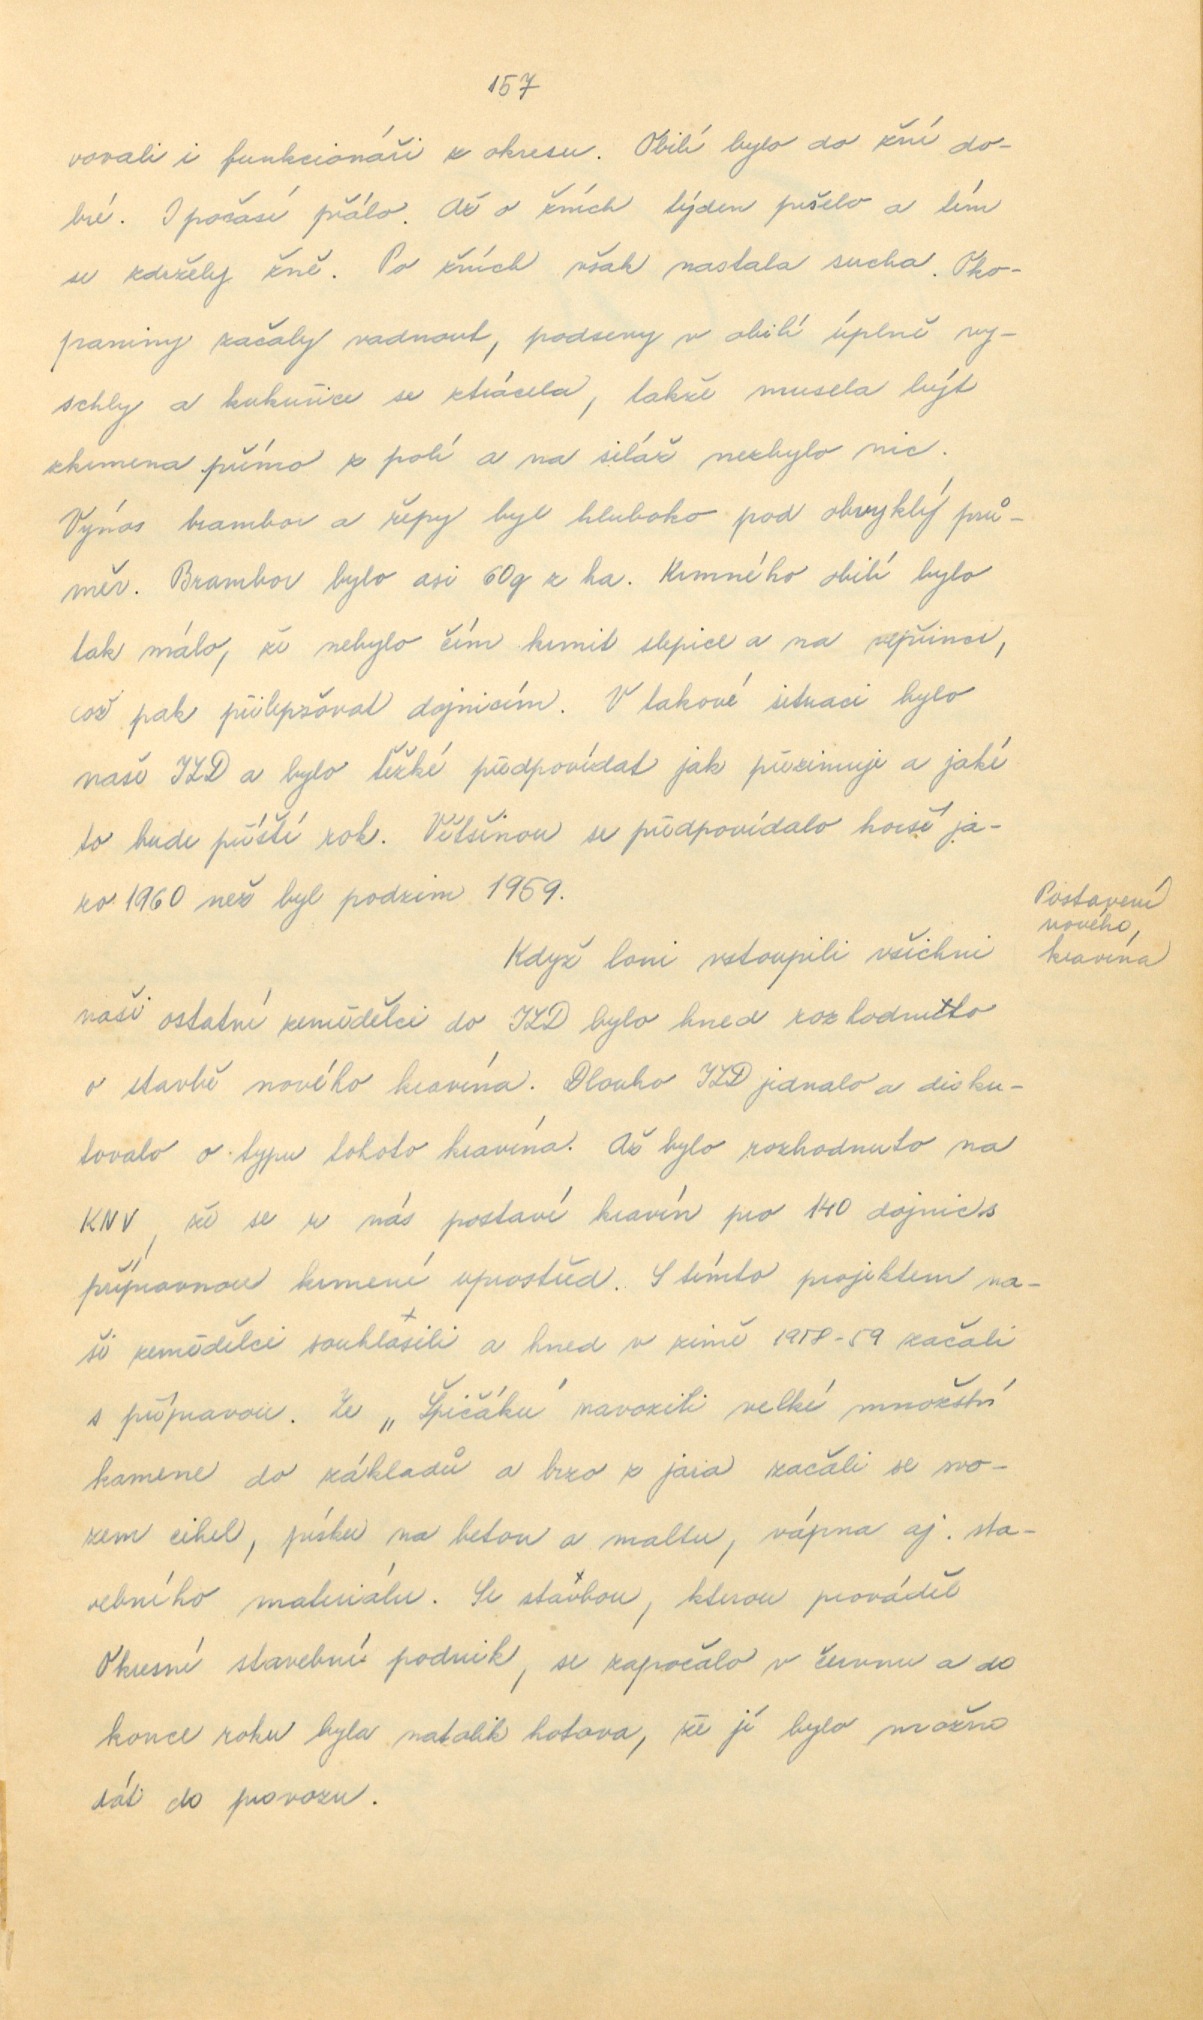 157
vovali i funkcionáři z okresu. Obilí bylo do žní do-
bré. I počasí přálo. Až o žních týden pršelo a tím
se zdržely žně. Po žních však nastala sucha. Oko-
paniny začaly vadnout, podsevy v obilí úplně vy-
schly a kukuřice se ztrácela, takže musela být
zkrmena přímo z polí a na siláž nezbylo nic.
Výnos brambor a řepy byl hluboko pod obvyklý prů-
měr. Brambor bylo asi 60q z ha. Krmného obilí bylo
tak málo, že nebylo čím krmit slepice a na vepřinci,
což pak přilepšovat dojnicím. V takové situaci bylo
naše JZD a bylo těžké předpovídat jak přezimuje a jaké
to bude příští rok. Většinou se předpovídalo horší ja-
ro 1960 než byl podzim 1959.
Postavení
nového
kravína
Když loni vstoupili všichni
naši ostatní zemědělci do JZD bylo hned rozhodnuto
o stavbě nového kravína. Dlouho JZD jednalo a disku-
tovalo o typu tohoto kravína. Až bylo rozhodnuto na
KNV, že se u nás postaví kravín pro 140 dojnic s
přípravnou krmení uprostřed. S tímto projektem na-
ši zemědělci souhlasili a hned v zimě 1958-59 začali
s přípravou. Ze „Špičáku" navozili velké množství
kamene do základů a brzo z jara začali se svo-
zem cihel, písku na beton a maltu, vápna aj. sta-
vebního materiálu. Se stavbou, kterou prováděl
Okresní stavební podnik, se započalo v červnu a do
konce roku byla natolik hotova, že jí bylo možno
dát do provozu.